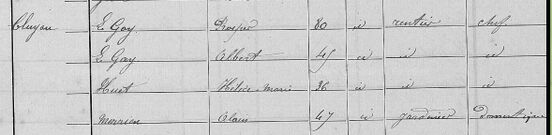 Le Gay Prosper 80 id rentier chef
Le Gay Albert 45 id id id
Huet Hélène Marie 36 id id id
Merrien Alain 47 id jardinier Domestique